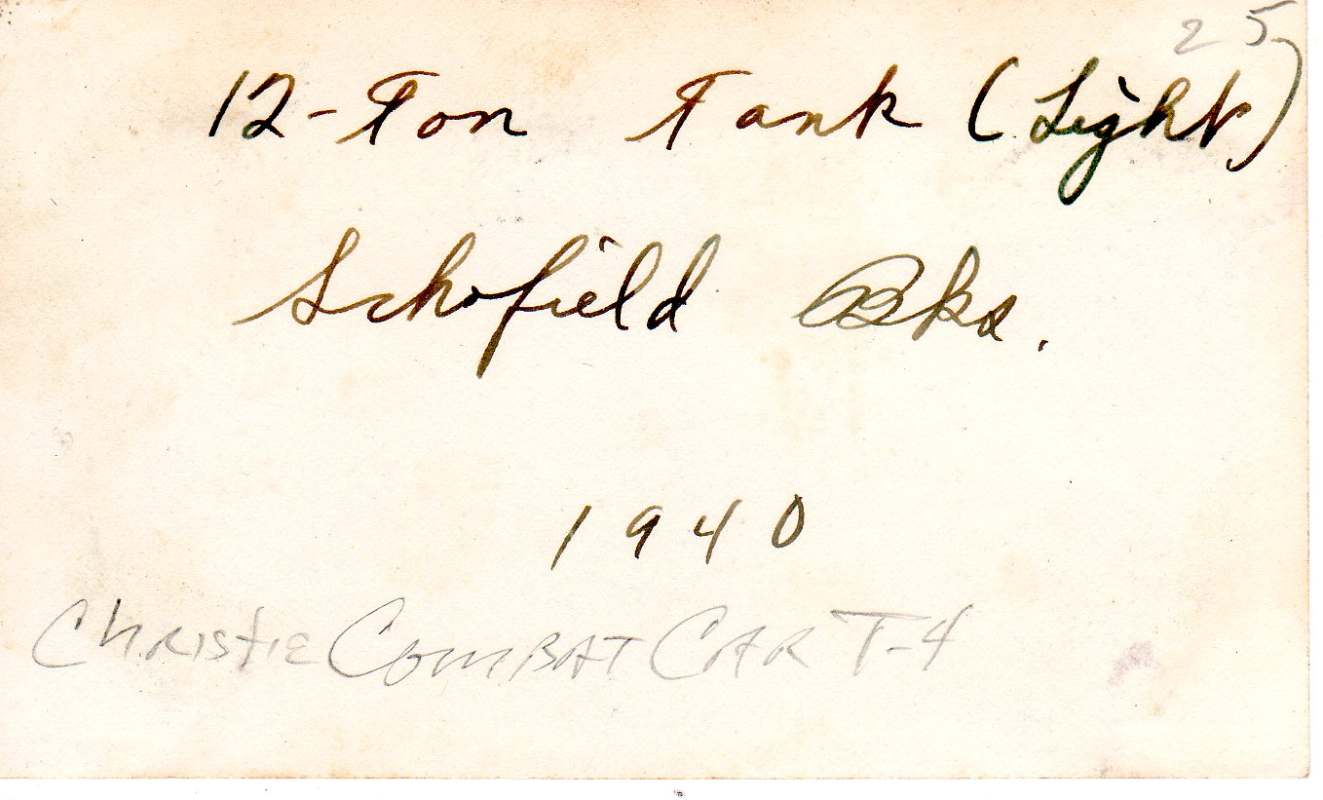 25
12-Ton Tank (Light)
Schofield Bks.
1940
Christie Combat Car T-4